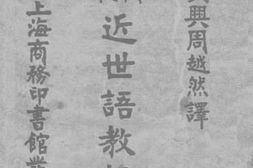 興周越然譯
近世語教
上海商務印書館